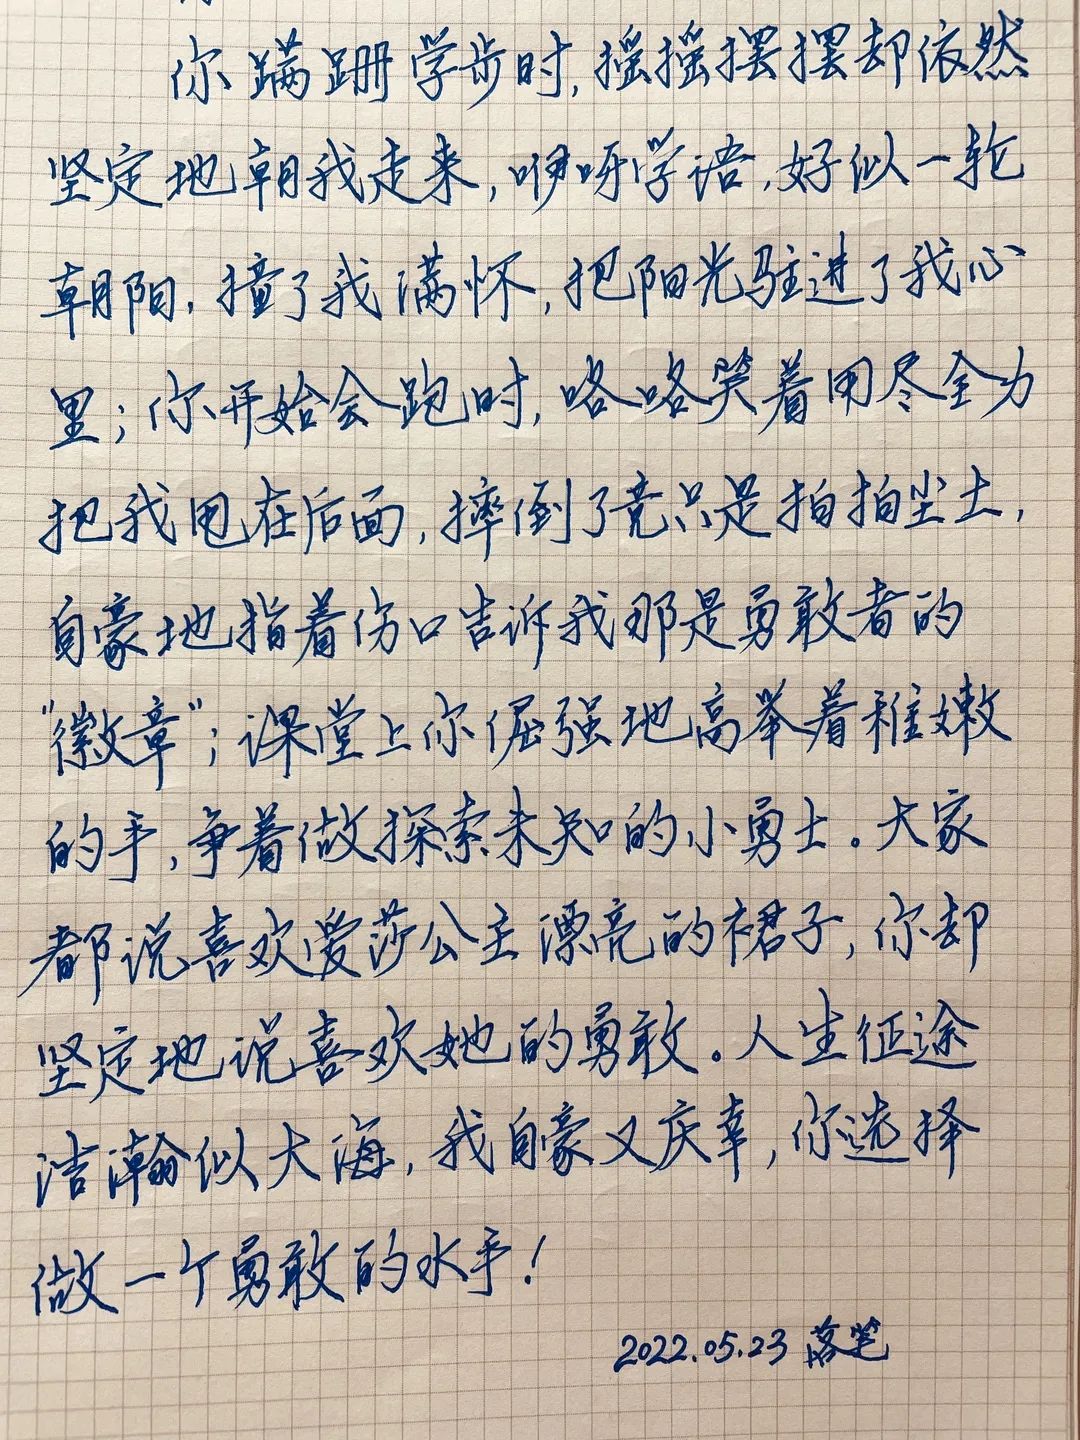 你蹒跚学步时,摇摇摆摆却依然
坚定地朝我走来,咿呀学语,好似一轮
朝阳,撞了我满怀,把阳光驻进了我心
里;你开始会跑时,咯咯笑着用尽全力
把我甩在后面,摔倒了竟只是拍拍尘土,
自豪地指着伤口告诉我那是勇敢者的
“徽章”;课堂上你倔强地高举着稚嫩
的手,争着做探索未知的小勇士。大家
都说喜欢爱莎公主漂亮的裙子,你却
坚定地说喜欢她的勇敢。人生征途
浩瀚似大海,我自豪又庆幸,你选择
做一个勇敢的水手!
2022.05.23 落笔